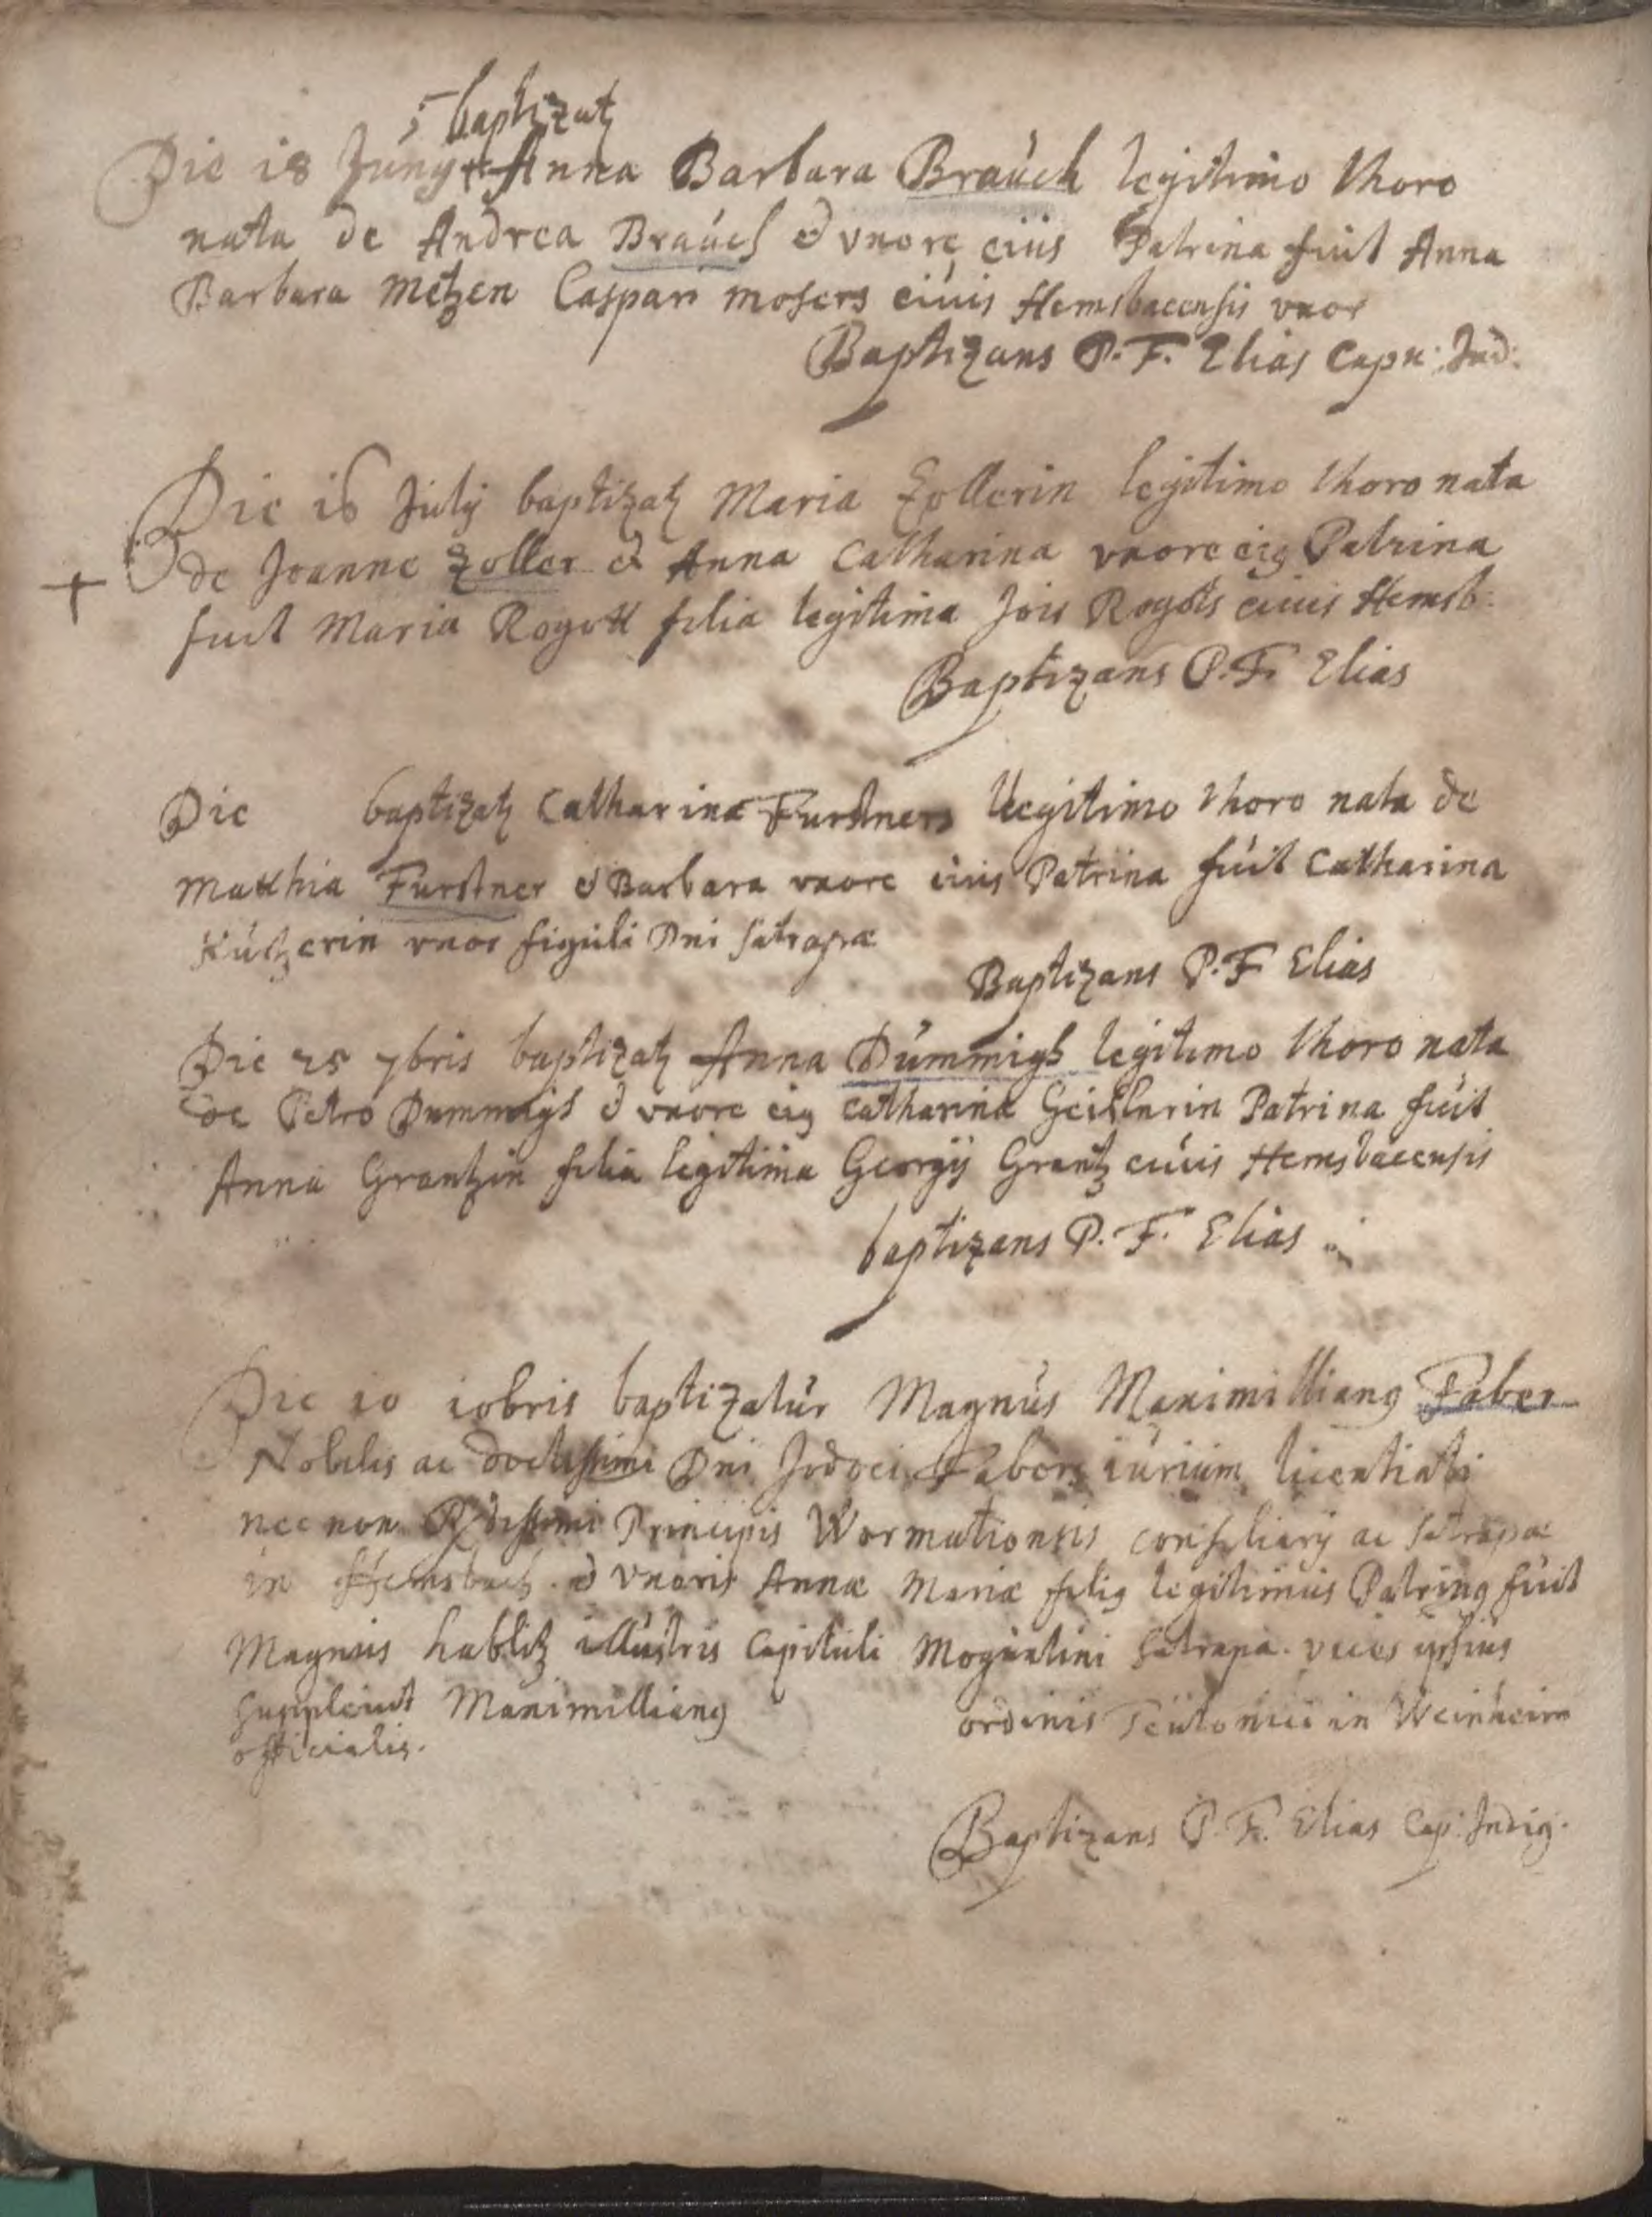 baptizatz
Die 18 Juny Anna Barbara Braúch legitimo thoro
nata de Andrea Braúch et vxore eiús Patrina fuit Anna
Barbara Metzen Caspari Mosers ciúis Hemsbacensis vxor
Baptizans P. F. Elias Capu: Ind:
Die 16 Júly baptizatz Maria Zollerin legitimo thoro nata
de Joanne Zoller et Anna Catharina vxore eig Patrina
fuit Maria Rogott filia legitima Jois Rogots ciuis Hemsb:
Baptizans P. F. Elias
Die baptizatz Catharina Furstners legitimo thoro nata de
Matthia Furstner et Barbara vxore eiús Patrina fúit Catharina
Kútzerin vxor figúli Dni Satrapæ
Baptizans P. F Elias
Die 25 7bris baptizatz Anna Dúmmigs legitimo thoro nata
de Petro Dummigs et vxore eig Catharina Patrina fúit
Anna Grantzin filia legitima Georgij Grantz ciúis Hemsbacensis
baptizans P. F. Elias
Die 10 10bris baptizatúr Magnús Maximilliang Faber
Nobilis ac doctissimi Dni Jodoci Fabers iúriúm licentiati
nec non Principis Wormationsis consiliarij ac Satrapæ
in Hemsbach et vxoris Annæ Mariæ filig legitimús Patring fúit
Magnús hablitz illústris Capitúli Mogúntini Satrapa. vices ipsius
suppleuit Maximilliang ordinis Teútonici in Weinheim
officialis.
Baptizans P. F. Elias Cap: Indig.